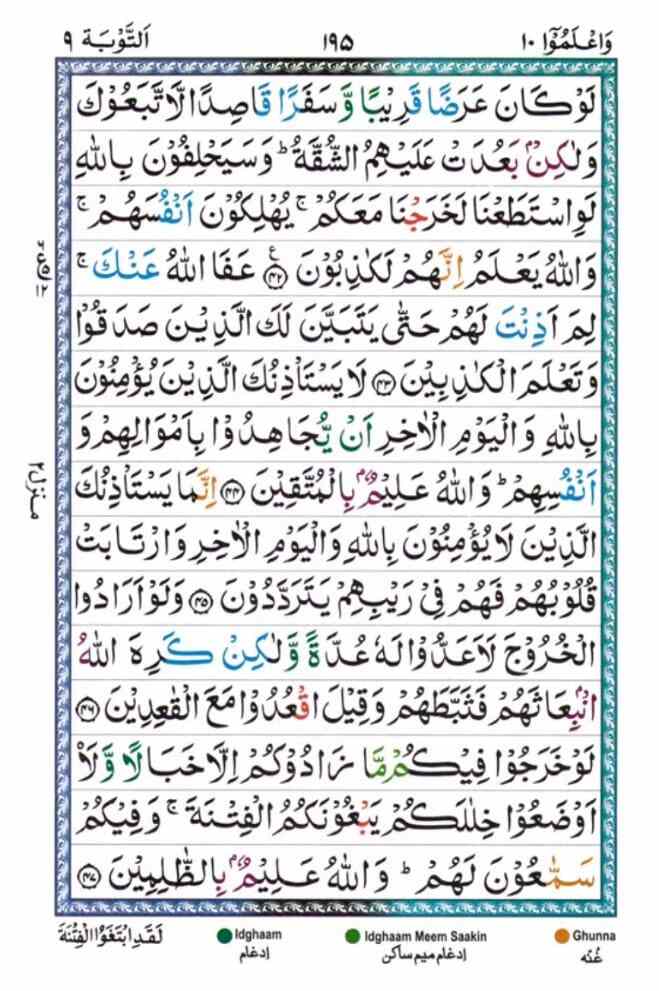 وَاعْلَمُوْٓا ۱۰
۱۹۵
اَلتَّوْبَة ۹
لَوْ كَانَ عَرَضًا قَرِيْبًا وَّ سَفَرًا قَاصِدًا لَّاتَّبَعُوْكَ
وَلٰكِنْۢ بَعُدَتْ عَلَيْهِمُ الشُّقَّةُ ؕ وَسَيَحْلِفُوْنَ بِاللّٰهِ
لَوِاسْتَطَعْنَا لَخَرَجْنَا مَعَكُمْ ۚ يُهْلِكُوْنَ اَنْفُسَهُمْ ۚ
وَاللّٰهُ يَعْلَمُ اِنَّهُمْ لَكٰذِبُوْنَ ﴿۴۲﴾ ع عَفَا اللّٰهُ عَنْكَ ۚ
لِمَ اَذِنْتَ لَهُمْ حَتّٰى يَتَبَيَّنَ لَكَ الَّذِيْنَ صَدَقُوْا
وَتَعْلَمَ الْكٰذِبِيْنَ ﴿۴۳﴾ لَا يَسْتَاْذِنُكَ الَّذِيْنَ يُؤْمِنُوْنَ
بِاللّٰهِ وَالْيَوْمِ الْاٰخِرِ اَنْ يُّجَاهِدُوْا بِاَمْوَالِهِمْ وَ
اَنْفُسِهِمْ ؕ وَاللّٰهُ عَلِيْمٌۢ بِالْمُتَّقِيْنَ ﴿۴۴﴾ اِنَّمَا يَسْتَاْذِنُكَ
الَّذِيْنَ لَا يُؤْمِنُوْنَ بِاللّٰهِ وَالْيَوْمِ الْاٰخِرِ وَارْتَابَتْ
قُلُوْبُهُمْ فَهُمْ فِىْ رَيْبِهِمْ يَتَرَدَّدُوْنَ ﴿۴۵﴾ وَلَوْ اَرَادُوا
الْخُرُوْجَ لَاَعَدُّوْا لَهٗ عُدَّةً وَّلٰكِنْ كَرِهَ اللّٰهُ
انْۢبِعَاثَهُمْ فَثَبَّطَهُمْ وَقِيْلَ اقْعُدُوْا مَعَ الْقٰعِدِيْنَ ﴿۴۶﴾
لَوْ خَرَجُوْا فِيْكُمْ مَّا زَادُوْكُمْ اِلَّا خَبَالًا وَّلَا۟
اَوْضَعُوْا خِلٰلَكُمْ يَبْغُوْنَكُمُ الْفِتْنَةَ ۚ وَفِيْكُمْ
سَمّٰعُوْنَ لَهُمْ ؕ وَاللّٰهُ عَلِيْمٌۢ بِالظّٰلِمِيْنَ ﴿۴۷﴾
منزل۲
لَقَدِ ابْتَغَوُا الْفِتْنَةَ
Idghaam
ادغام
Idghaam Meem Saakin
ادغام میم ساکن
Ghunna
غُنّه